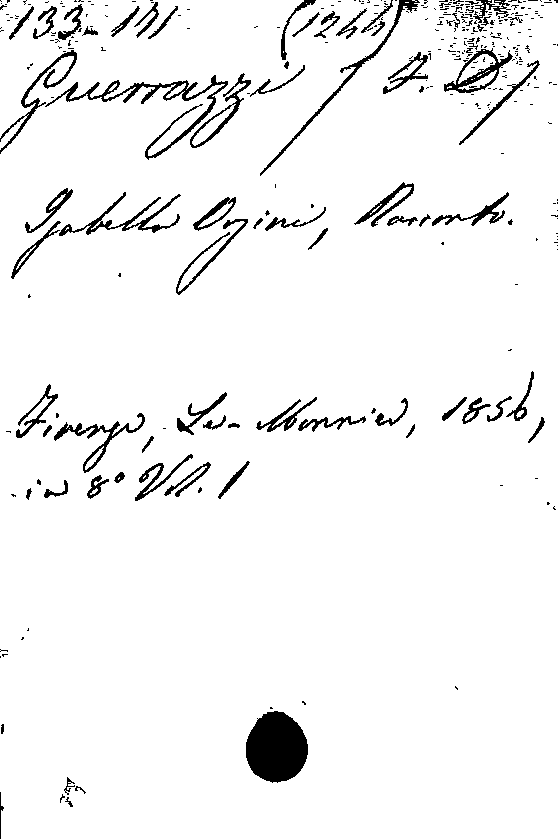 133- 141 (1244)
Guerrazzi / F. D /
Isabella Orsini, Racconto.
Firenze, Le-Monnier, 1856,
in 8° Vol. 1